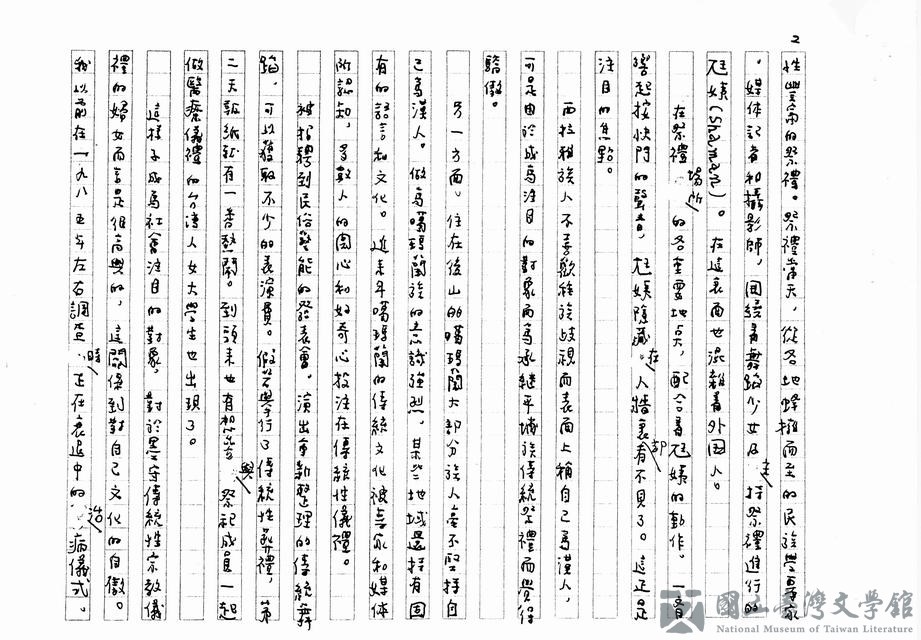 2
性豐富的祭禮。祭禮當天,從各地蜂擁而至的民族學專家
、媒体記者和攝影師,圍繞着舞蹈少女及主持祭禮進行的
尪姨(Shaman)。在這裏面也混雜着外国人。
在祭禮場所的各重要地点,配合着尪姨的動作,一齊
響起按快門的聲音,尪姨隱藏在人牆裏都看不見了。這正是
注目的焦點。
西拉雅族人不喜歡種族歧視而表面上稱自己為漢人,
可是由於成為注目的對象而為承継平埔族傳統祭禮而覺得
驕傲。
另一方面,住在後山的噶瑪蘭大部分族人毫不堅持自
己為漢人。做為噶瑪蘭族的意識強烈,某些地域還持有固
有的語言和文化。近來年噶瑪蘭的傳統文化被喜家和媒体
所認知,多数人的関心和好奇心投注在傳統性儀禮。
被招聘到民俗藝能的發表會,演出重新整理的傳統舞
蹈,可以獲取不少的表演費。假若舉行了傳統性葬禮,第
二天報紙就有一番熱鬧。到頭來也有想當祭祀成員一起
做醫療儀禮的台湾人女大學生也出現了。
這樣子成為社會注目的對象,對於墨守傳統性宗教儀
禮的婦女而言是很高興的,這関係到對自己文化的自傲。
我以前在一九八五年左右調查時,正在衰退中的造病儀式。
國立臺灣文學館
National Museum of Taiwan Literature